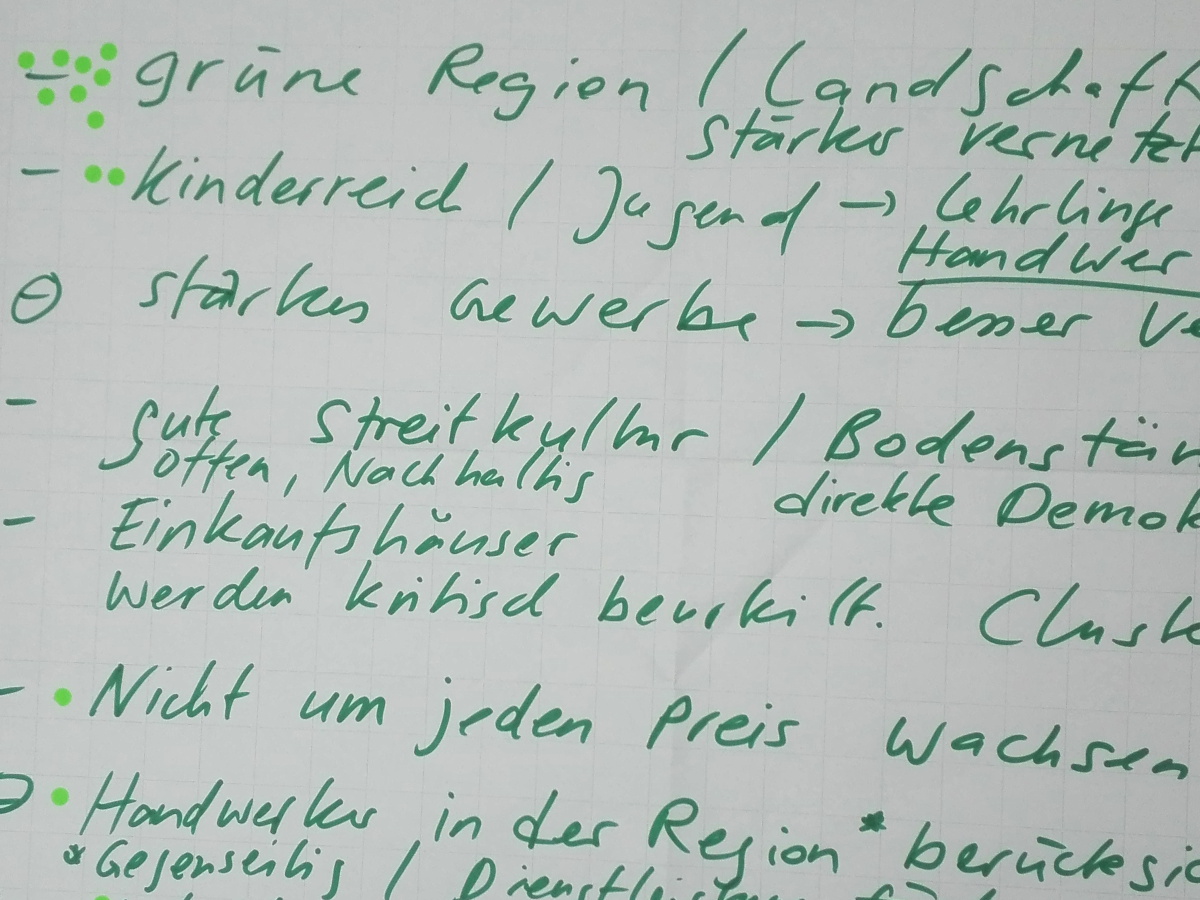 - grüne Region / Landschaft
stärker vernetzt
- Kinderreich / Jugend → Lehrlinge
Handwer
⊖ starkes Gewerbe → besser Ve
- gute Streitkultur / Bodenstän
offen, Nachhaltig
direkte Demok
- Einkaufshäuser
werden kritisch beurteilt. Cluste
- Nicht um jeden Preis wachsen
Handwerker in der Region * berücksic
* Gegenseitig / Dienstleistung